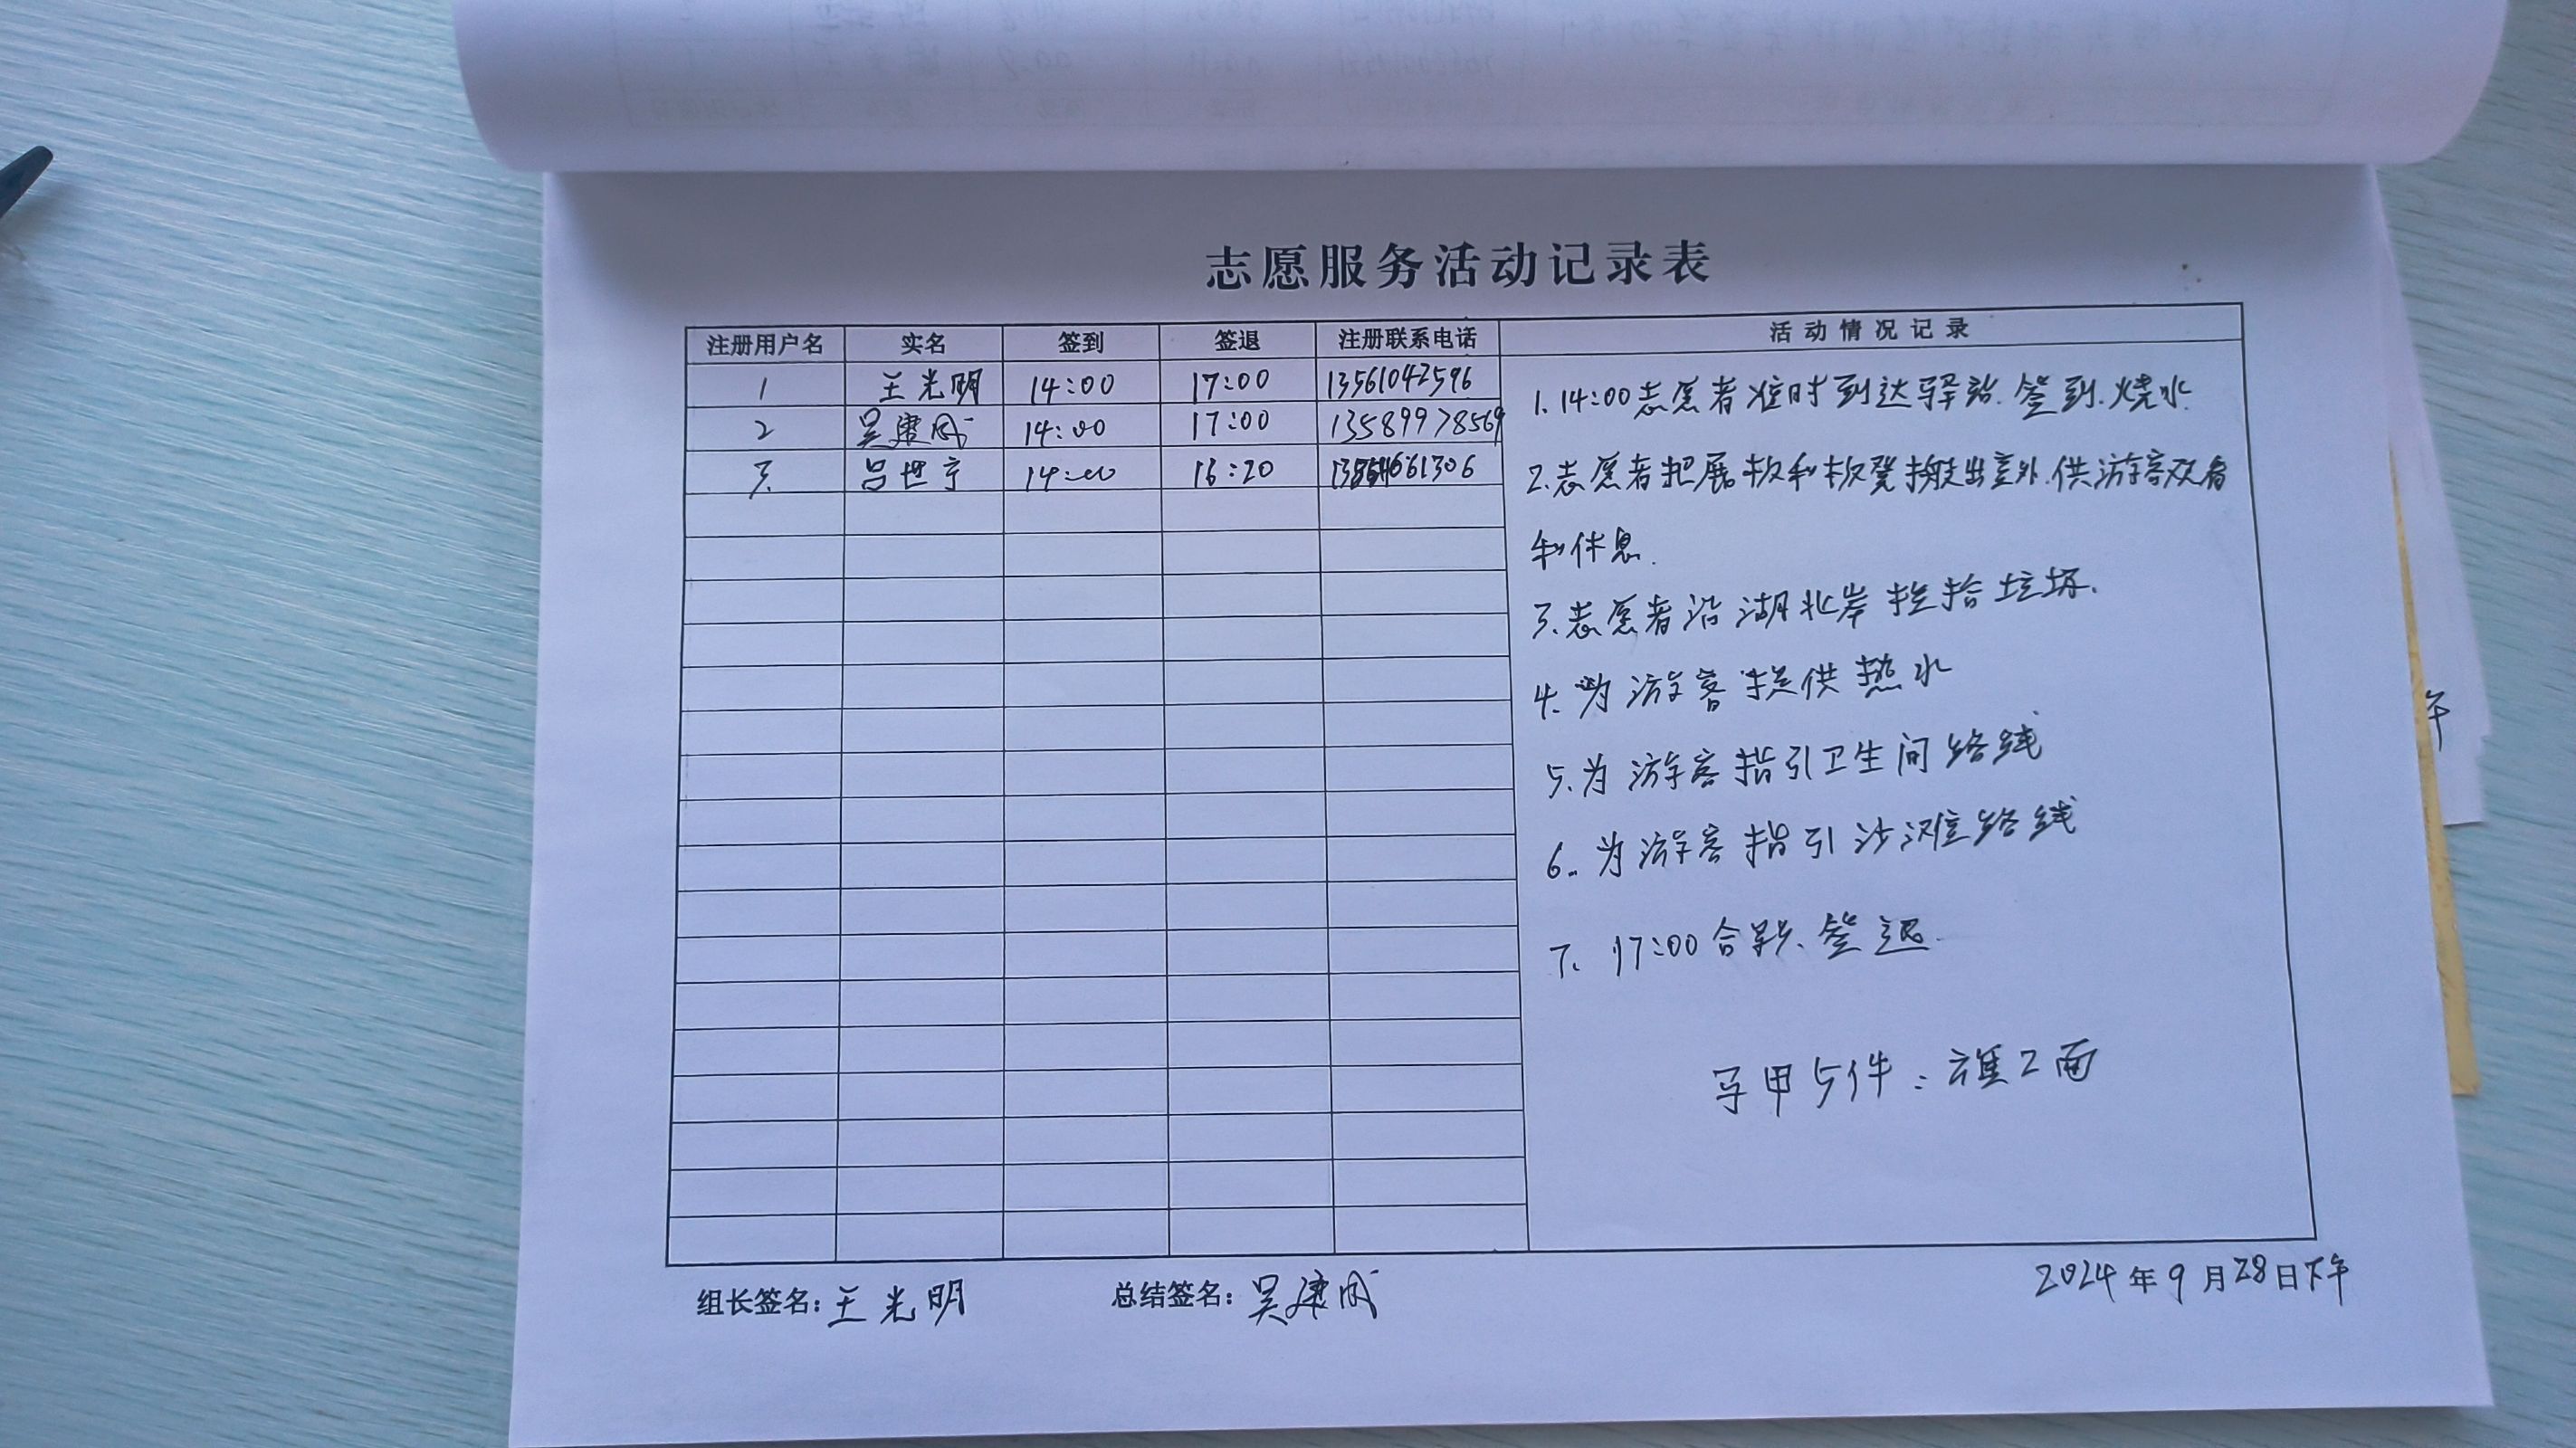 志愿服务活动记录表
注册用户名 实名 签到 签退 注册联系电话 活动情况记录
1 王光明 14:00 17:00 13561042596
2 吴建成 14:00 17:00 13589978569
3. 吕世宁 14:00 16:20
1. 14:00志愿者准时到达驿站.签到.烧水.
2.志愿者把展板和板凳搬出室外.供游客观看
和休息.
3.志愿者沿湖北岸捡拾垃圾.
4.为游客提供热水
5.为游客指引卫生间路线
6.为游客指引沙滩路线
7. 17:00合影、签退.
马甲5件:旗2面
组长签名:王光明 总结签名:吴建成 2024年9月28日下午
午